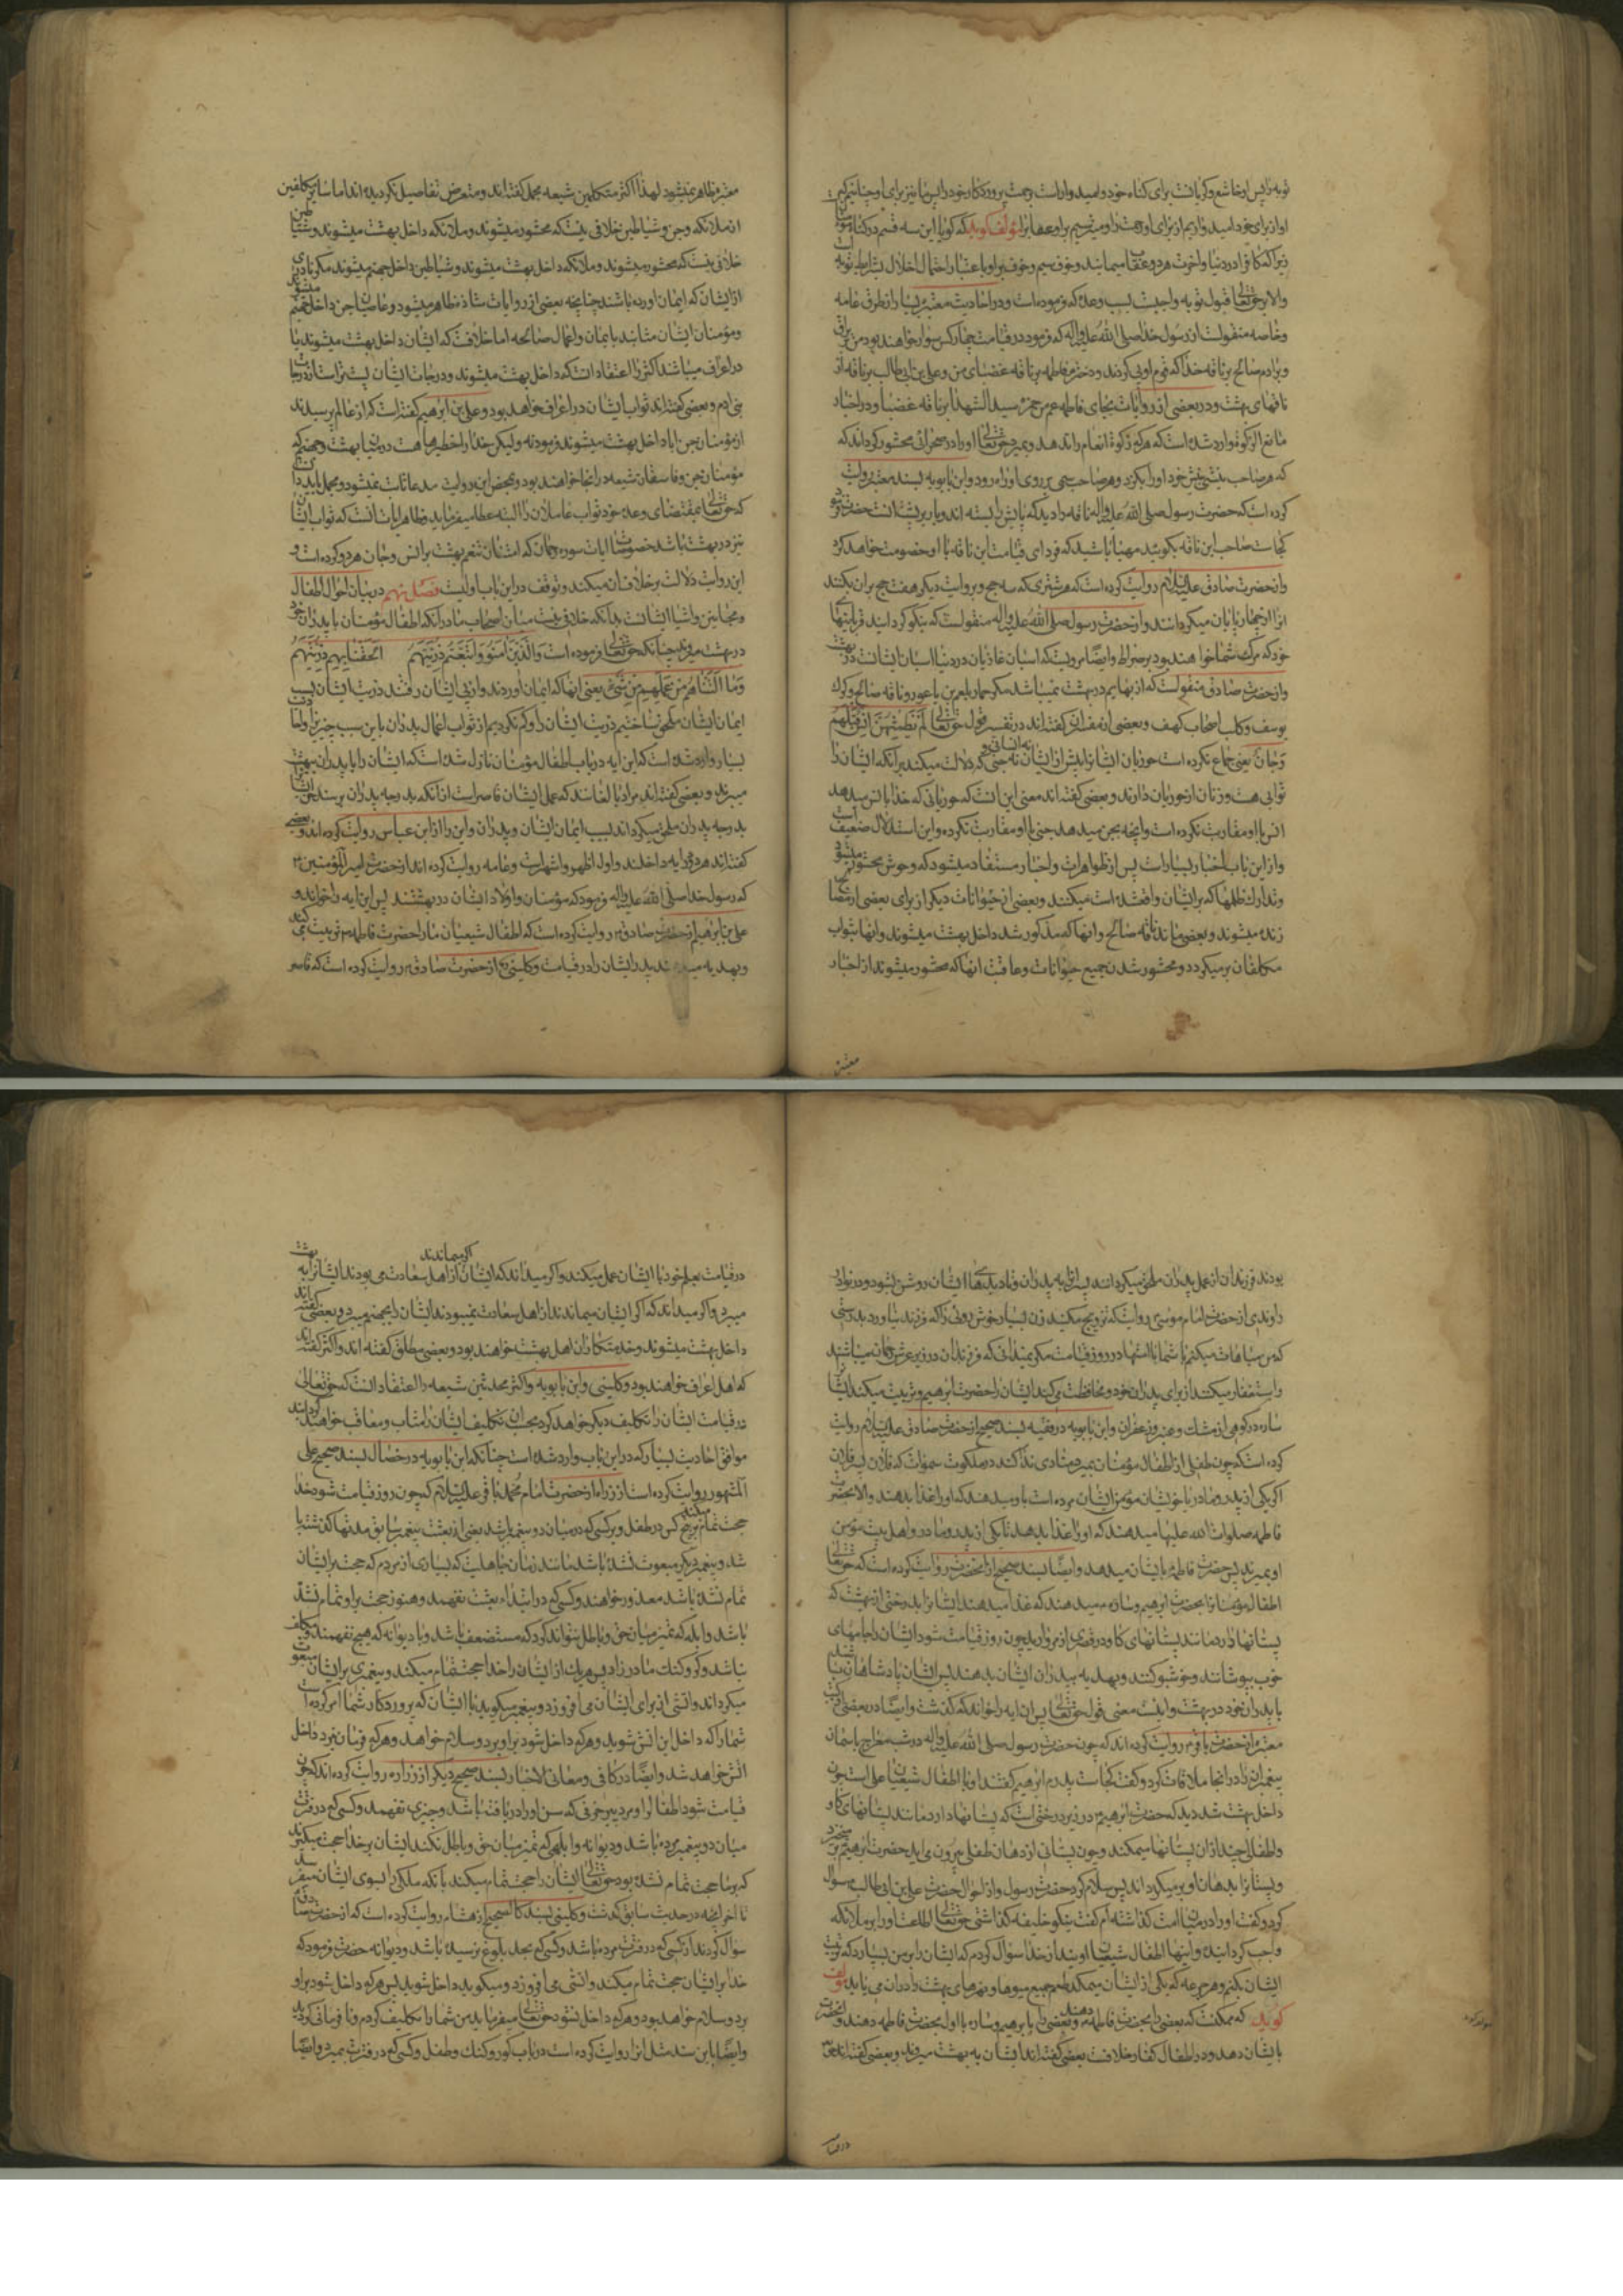 توبه پس او خاشع و گریانست برای گناه خود و امیدوار است رحمت پروردگار خود را پس ما نیز برای او چنانیم که
او از برای خود امید داریم از برای او رحمت را و میترسیم بر او عقاب را مؤلف گوید که گویا این سه قسم در گناه
زیرا که کافر در دنیا و آخرت هر دو عقاب میباشد و خوف سیم و خوف بر او باعتبار احتمال اخلال بشرایط توبه
والا بر حق تعالی قبول توبه واجبست بسبب وعده که فرموده است و در احادیث معتبره بسیار از طرق عامه
و خاصه منقولست از رسول خدا صلی الله علیه و آله که فرمود در قیامت چهار کس سوار خواهند بود من بر براق
و برادرم صالح بر ناقه خدا که قوم او پی کردند و دخترم فاطمه بر ناقه غضبای من و علی بن ابی طالب بر ناقه از
ناقهای بهشت و در بعضی از روایات بجای فاطمه عمم حمزه سید الشهدا بر ناقه غضبا و در اخبار
مانع الزکوة وارد شده است که هر که زکوة انعام را ندهد و بمیرد حق تعالی او را در صحرائی محشور گرداند که
که هر صاحب نیشی نیش خود او را بگزد و هر صاحب سمی بر روی او راه رود و ابن بابویه بسند معتبر روایت
کرده است که حضرت رسول صلی الله علیه و آله ناقه را دید که پایش را بسته اند و بار بر پشت آنست حضرت فرمود
کجاست صاحب این ناقه بگوئید مهیا باشید که فردای قیامت این ناقه با او خصومت خواهد کرد
و از حضرت صادق علیه السلام روایت کرده است که هر شتری که سه حج و بروایت دیگر هفت حج بر آن بکنند
آنرا از چهارپایان میگردانند و از حضرت رسول صلی الله علیه و آله منقولست که نیکو گردانید قربانیها
خود که مرکب شما خواهند بود بر صراط و ایضا مرویست که اسبان غازیان در دنیا اسبان ایشانست در بهشت
و از حضرت صادق منقولست که از بهایم در بهشت نمیباشد مگر حمار بلعم بن باعور و ناقه صالح و گرک
یوسف و کلب اصحاب کهف و بعضی از مفسران گفته اند در تفسیر قول حق تعالی لم یطمثهن انس قبلهم
ولا جان یعنی جماع نکرده است حوریان ایشانرا پیش از ایشان نه انسانی و نه جنی که دلالت میکند بر آنکه ایشان را
ثوابی هست و زنان از حوریان دارند و بعضی گفته اند معنی این آنست که حوریانی که خدا بانس میدهد
انس با او مقاربت نکرده است و آنچه بجن میدهد جنی با او مقاربت نکرده و این استدلال ضعیف است
و از این باب اخبار بسیار است پس از ظواهر آیات و اخبار مستفاد میشود که وحوش محشور میشوند
و تدارک ظلمها که بر ایشان واقع شده است میکنند و بعضی از حیوانات دیگر از برای بعضی از مصالح
زنده میشوند و بعضی مانند ناقه صالح و آنها که مذکور شد داخل بهشت میشوند و آنها بثواب
مکلفان بر میگردد و محشور شدن جمیع حیوانات و عاقبت آنها که محشور میشوند از اخبار
معتبره ظاهر نمیشود لهذا اکثر متکلمین شیعه مجمل گفته اند و متعرض تفاصیل نگردیده اند اما سایر مکلفین
از ملائکه و جن و شیاطین خلافی نیست که محشور میشوند و ملائکه داخل بهشت میشوند و شیاطین
خلافی نیست که محشور میشوند و ملائکه داخل بهشت میشوند و شیاطین داخل جهنم میشوند مگر نادری
از ایشان که ایمان آورده باشند چنانچه بعضی از روایات شاذه ظاهر میشود و عاصیان جن داخل جهنم میشوند
و مؤمنان ایشان مثابند بایمان و اعمال صالحه اما خلافست که ایشان داخل بهشت میشوند یا
در اعراف میباشند اکثر را اعتقاد آنست که داخل بهشت میشوند و درجات ایشان پست تر است از درجات
بنی آدم و بعضی گفته اند ثواب ایشان در اعراف خواهد بود و علی بن ابراهیم گفته است که از عالم پرسیدند
از مؤمنان جن آیا داخل بهشت میشوند فرمود نه ولیکن خدا را حظیرها هست در میان بهشت و جهنم که
مؤمنان جن و فاسقان شیعه در آنجا خواهند بود و بمحض این روایت مدعا ثابت نمیشود و مجمل باید دانست
که حق تعالی بمقتضای وعده خود ثواب عاملان را البته عطا میفرماید و ظاهر آیات آنست که ثواب ایشان
نیز در بهشت باشد خصوصا آیات سوره رحمن که امتنان تنعم بهشت بر انس و جان هر دو کرده است و
این روایت دلالت بر خلاف آن میکند و توقف در این باب اولیست فصل نهم در بیان احوال اطفال
و مجانین و اشباه ایشانست بدانکه خلافی نیست میان اصحاب ما در آنکه اطفال مؤمنان با پدران خود
در بهشت میروند چنانکه حق تعالی فرموده است والذین آمنوا واتبعتهم ذریتهم الحقنا بهم ذریتهم
وما التناهم من عملهم من شئ یعنی آنها که ایمان آوردند و از پی ایشان رفتند ذریت ایشان بسبب
ایمان ایشان ملحق ساختیم ذریت ایشان را و کم نکردیم از ثواب اعمال پدران باین سبب چیزی را و احادیث
بسیار وارد شده است که این آیه در باب اطفال مؤمنان نازل شده است که ایشان را با پدران ببهشت
میبرند و بعضی گفته اند مراد بالغانند که عمل ایشان قاصر است از آنکه بدرجه پدران برسند حق ایشان
بدرجه پدران ملحق میگرداند بسبب ایمان ایشان و پدران و این را از ابن عباس روایت کرده اند و بعضی
گفته اند هر دو در آیه داخلند و اول اظهر و اشهر است و عامه روایت کرده اند از حضرت امیر المؤمنین
که رسول خدا صلی الله علیه و آله فرمود که مؤمنان و اولاد ایشان در بهشتند پس این آیه را خواند و
علی بن ابراهیم از حضرت صادق روایت کرده است که اطفال شیعیان ما را حضرت فاطمه تربیت میکند
و بهدیه میدهد پدر ایشان را در قیامت و کلینی از حضرت صادق روایت کرده است که قاصر
معتبره
بودند فرزندان از عمل پدران ملحق میگردانند پسرانرا به پدران تا دیدهای ایشان روشن شود و در نوادر
راوندی از حضرت امام موسی روایتست که تزویج مکنید زن بسیار خوش روئی را که فرزند نیاورد بدرستی
که من مباهات میکنم با شما با امتها در روز قیامت مگر نمیدانی که فرزندان در زیر عرش رحمان میباشند
و استغفار میکنند از برای پدران خود و محافظت میکند ایشان را حضرت ابراهیم و تربیت میکند ایشانرا
ساره در کوهی از مشک و عنبر و زعفران و ابن بابویه در فقیه بسند صحیح از حضرت صادق علیه السلام روایت
کرده است که چون طفلی از اطفال مؤمنان بمیرد منادی ندا کند در ملکوت سموات که فلان پسر فلان
اگر یکی از پدر و مادر یا خویشان مؤمن ایشان مرده است باو میدهند که او را غذا بدهند والا بحضرت
فاطمه صلوات الله علیها میدهند که او را غذا بدهد تا یکی از پدر و مادر و اهل بیت مؤمن
او بمیرند پس حضرت فاطمه بایشان میدهد و ایضا بسند صحیح از آنحضرت روایت کرده است که حق تعالی
اطفال مؤمنانرا بحضرت ابراهیم و ساره میدهند که غذا میدهند ایشانرا بدرختی از بهشت که
پستانها دارد مانند پستانهای گاو در قصری از مروارید چون روز قیامت شود ایشان را جامهای
خوب بپوشانند و خوشبو کنند و بهدیه به پدران ایشان بدهند پس ایشان پادشاهان باشند
با پدران خود در بهشت و اینست معنی قول حق تعالی پس آن آیه را خواند که گذشت و ایضا در بعضی کتب
معتبره از حضرت باقر روایت کرده اند که چون حضرت رسول صلی الله علیه و آله در شب معراج باسمان
پیغمبران را در آنجا ملاقات کرد و گفت کجاست پدرم ابراهیم گفتند او با اطفال شیعیان علی است چون
داخل بهشت شد دید که حضرت ابراهیم در زیر درختی است که پستانها دارد مانند پستانهای گاو
و اطفالی چند از آن پستانها میمکند و چون پستانی از دهان طفلی بیرون می آید حضرت ابراهیم بر میخیزد
و پستانرا بدهان او بر میگرداند پس سلام کرد حضرت رسول و از احوال حضرت علی بن ابی طالب سؤال
کرد و گفت او را در میان امت گذاشته ام گفت نیکو خلیفه گذاشتی حق تعالی اطاعت او را بر ملائکه
واجب گردانیده و اینها اطفال شیعیان اویند از خدا سؤال کردم که ایشان را بمن بسپارد که تربیت
ایشان بکنم و هر جرعه که یکی از ایشان میمکد طعم جمیع میوها و نهرهای بهشت را در آن می یابد مؤلف
گوید که ممکنست که بعضی را بحضرت فاطمه دهند و بعضی را بابراهیم و ساره یا اول بحضرت فاطمه دهند و آنحضرت
بایشان دهد و در اطفال کفار خلافست بعضی گفته اند ایشان به بهشت میروند و بعضی گفته اند حق
در قیامت بعلم خود با ایشان عمل میکند و اگر میداند که ایشان اگر میماندند از اهل سعادت می بودند ایشانرا به بهشت
میبرد و اگر میداند که اگر ایشان میماندند از اهل سعادت نمیبودند ایشان را بجهنم میبرد و بعضی گفته اند
داخل بهشت میشوند و خدمتکاران اهل بهشت خواهند بود و بعضی مطلق گفته اند و اکثر گفته اند
که اهل اعراف خواهند بود و کلینی و ابن بابویه و اکثر محدثین شیعه را اعتقاد آنست که حق تعالی
در قیامت ایشان را تکلیف دیگر خواهد کرد که بآن تکلیف ایشان را مثاب و معاقب خواهند گردانند
موافق احادیث بسیار که در این باب وارد شده است چنانکه ابن بابویه در خصال بسند صحیح علی
المشهور روایت کرده است از زراره از حضرت امام محمد باقر علیه السلام که چون روز قیامت شود خدا
حجت تمام میکند بر پنج کس بر طفل و بر کسی که در میان دو پیغمبر باشد یعنی از بعثت پیغمبر سابق مدتها گذشته با
شد و پیغمبر دیگر مبعوث نشده باشد مانند زمان جاهلیت که بسیاری از مردم که حجت بر ایشان
تمام نشده باشد معذور خواهند و کسی که در ابتداء بعثت نفهمد و هنوز حجت بر او تمام نشده
باشد و ابله که تمیز میان حق و باطل نتواند کرد که مستضعف باشد و یا دیوانه که هیچ نفهمد و مکلف
نباشد و کر و گنگ مادرزاد پس هر یک از ایشان را خدا حجت تمام میکند و پیغمبری بر ایشان مبعوث
میگرداند و آتشی از برای ایشان می افروزد و پیغمبر میگوید با ایشان که پروردگار شما امر کرده است
شما را که داخل این آتش شوید و هر که داخل شود بر او برد و سلام خواهد و هر که فرمان نبرد داخل
آتش خواهد شد و ایضا در کافی و معانی الاخبار بسند صحیح دیگر از زراره روایت کرده اند که چون
قیامت شود اطفال را و مرد پیر خرفی که سن او را دریافته باشد و چیزی نفهمد و کسی که در فترت
میان دو پیغمبر مرده باشد و دیوانه و ابلهی که تمیز میان حق و باطل نکند ایشان بر خدا حجت میگیرند
که بر ما حجت تمام نشده بود حق تعالی ایشان را حجت تمام میکند بآنکه ملکی را بسوی ایشان میفرستد
تا آخر آنچه در حدیث سابق گذشت و کلینی بسند کالصحیح از هشام روایت کرده است که از حضرت صادق
سؤال کردند از کسی که در فترت مرده باشد و کسی که بحد بلوغ نرسیده باشد و دیوانه حضرت فرمود که
خدا بر ایشان حجت تمام میکند و آتشی می افروزد و میگوید داخل شوید پس هر که داخل شود بر او
برد و سلام خواهد بود و هر که داخل نشود حق تعالی میفرماید من شما را تکلیف کردم و نافرمانی کردید
و ایضا باین سند مثل آنرا روایت کرده است در باب کور و گنگ و طفل و کسی که در فترت بمیرد و ایضا
در قیامت